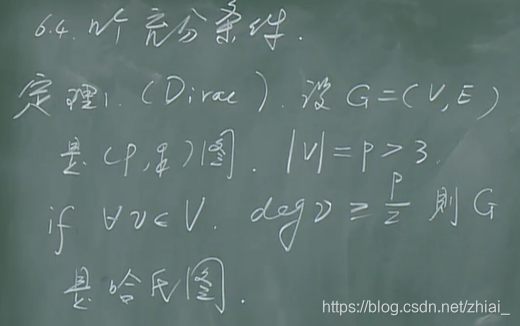 6.4. 的充分条件.
定理1. (Dirac). 设 G=(V,E)
是(p,q)图. |V|=p>3.
if ∀v∈V. deg v ≥ p/2 则 G
是哈氏图.
https://blog.csdn.net/zhiai_